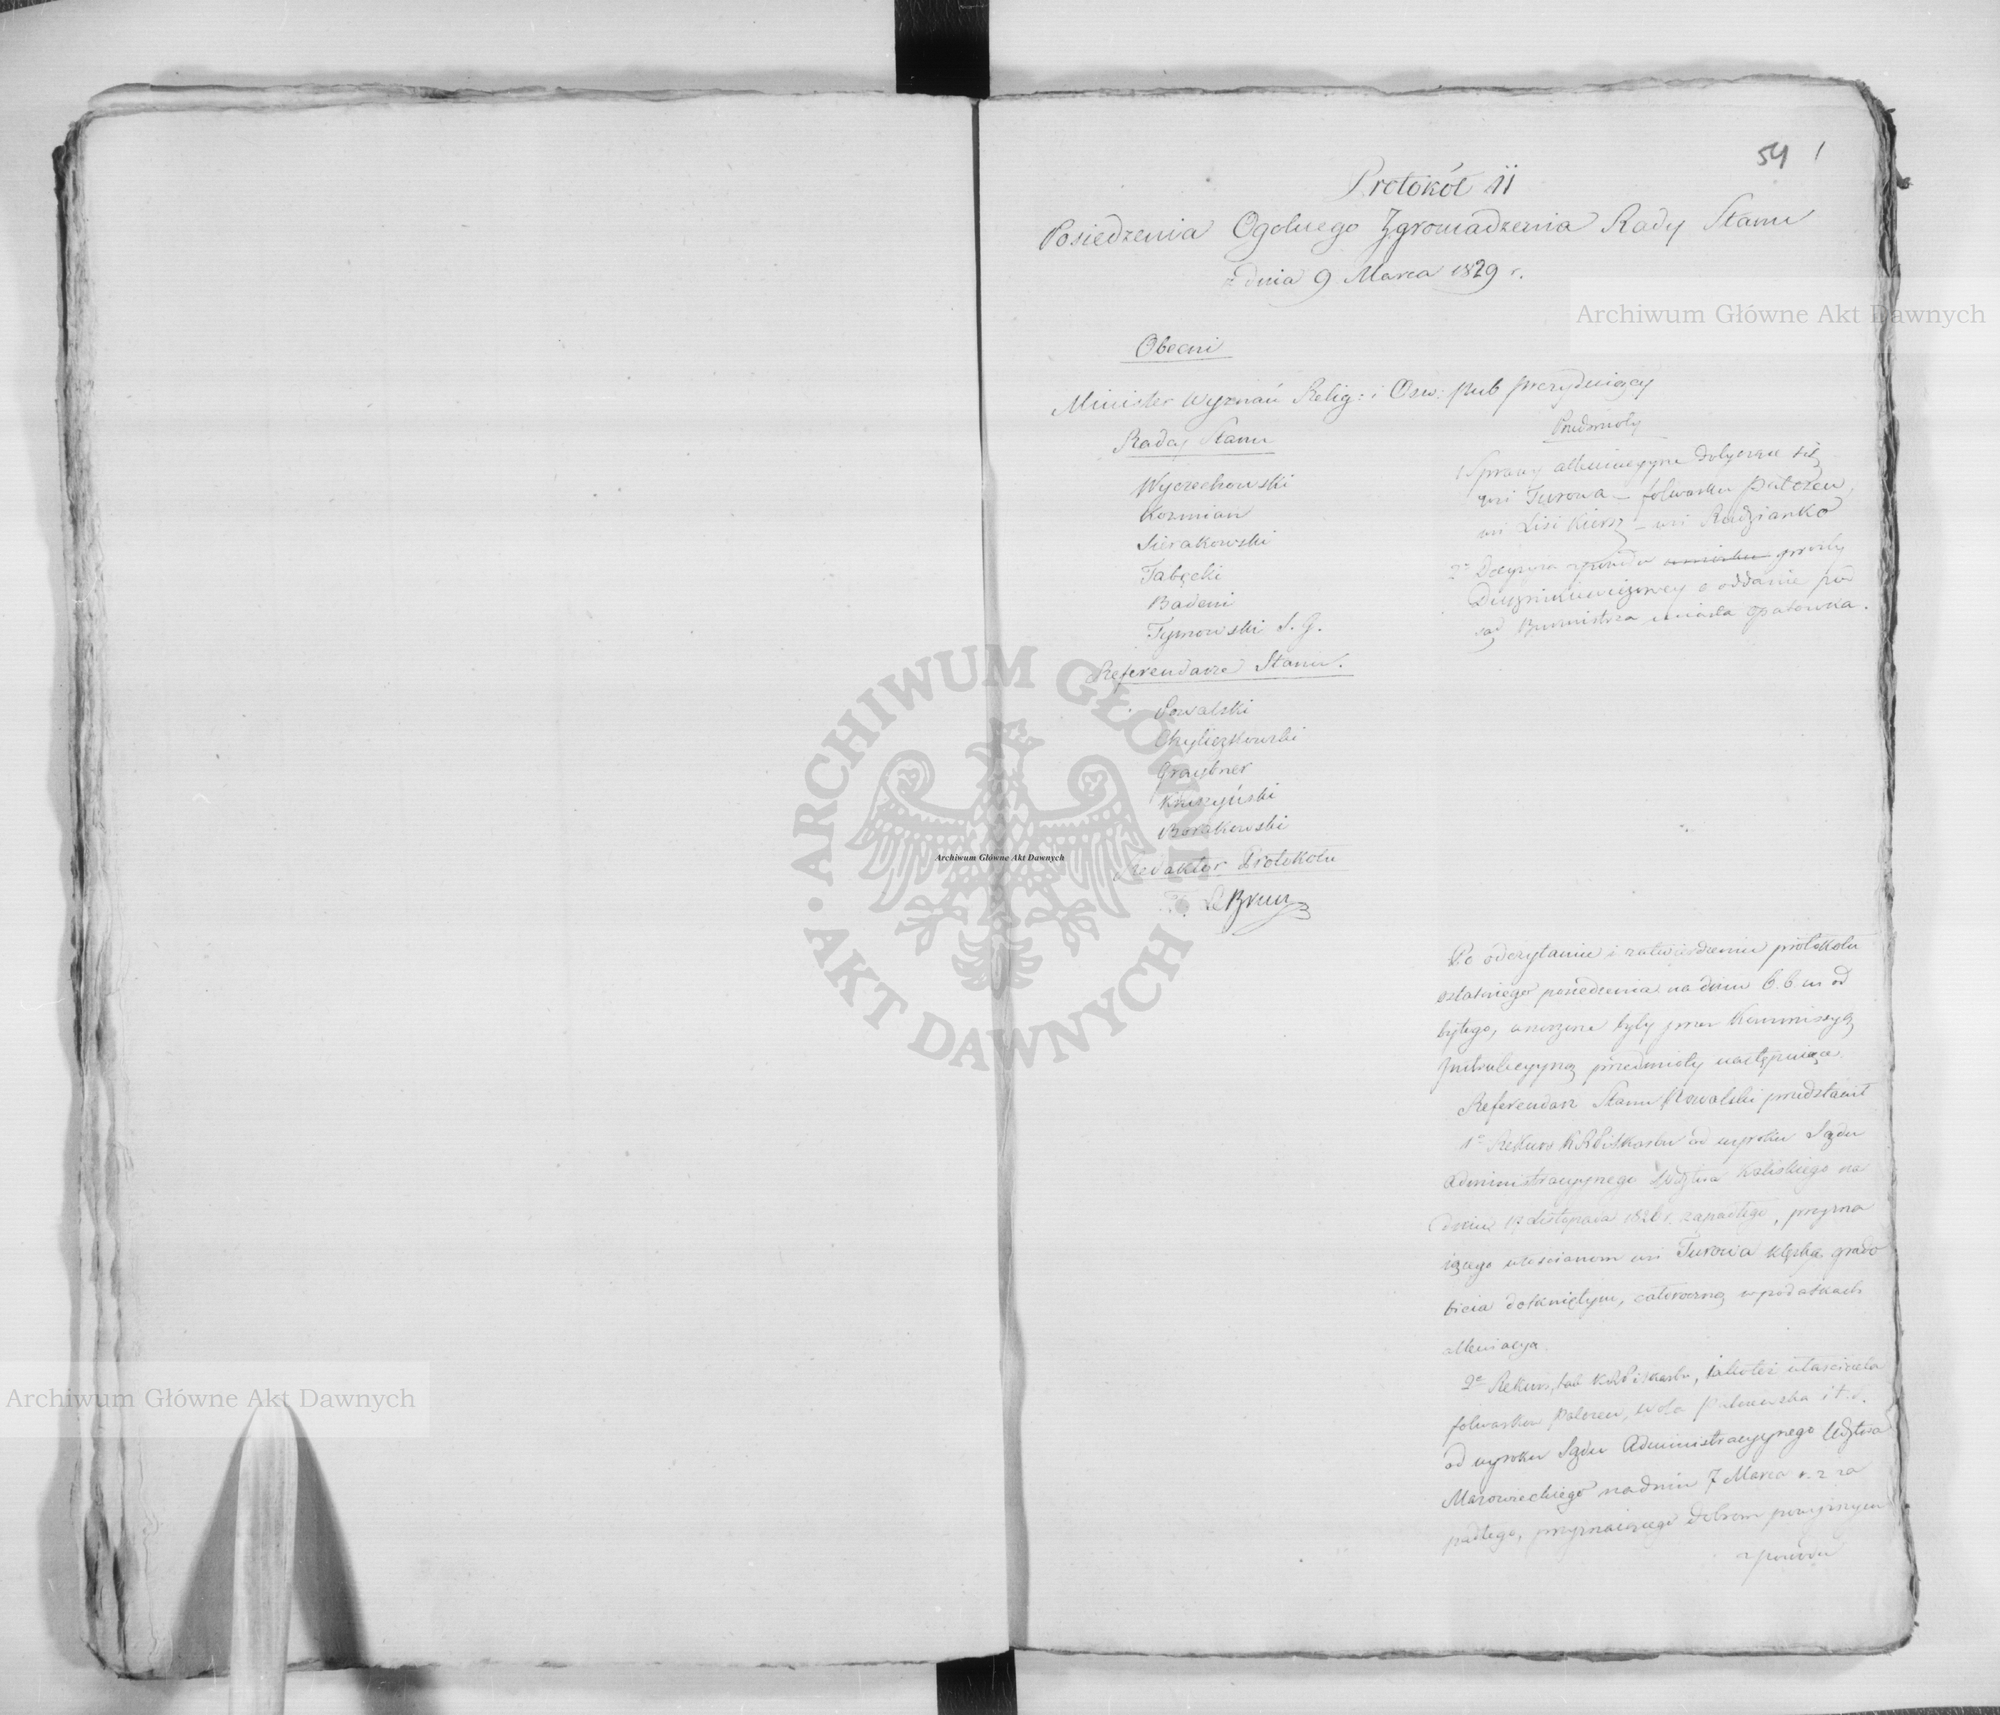 54 1
Protokół 11
Posiedzenia Ogolnego Zgromadzenia Rady Stanu
z dnia 9 Marca 1829 r.
Archiwum Główne Akt Dawnych
Obecni
Minister Wyznań Relig: i Osw: Pub prezydujący
Radcy Stanu
Wyczechowski
Kozmian
Sierakowski
Tabęcki
Badeni
Tymowski S. G.
Referendarze Stanu.
Kowalski
Chyliczkowski
Graybner
Kruszyński
Borakowski
Redaktor Protokołu
Le Brun
Przedmioty
1 Sprawy allewiacyjne dotyczące się
wsi Turowa – folwarku Patozew,
wsi Lisi Kierz – wsi Radzianko
2° Decyzya wzglądu prośby
o oddanie pod
sąd Burmistrza miasta Opatowka.
ARCHIWUM GŁÓWNE AKT DAWNYCH
Archiwum Główne Akt Dawnych
Po odczytaniu i zatwierdzeniu protokołu
ostatniego posiedzenia na dniu 6. b. m od
bytego, wnoszone były przez Kommissyą
Instrukcyjną przedmioty następujące.
Referendarz Stanu Kowalski przedstawił
1° Rekurs K R P i Skarbu od wyroku Sądu
Administracyjnego Wdztwa Kaliskiego na
dniu 17 Listopada 1826 r. zapadłego, przyzna
iącego włościanom wsi Turowa klęską grado
bicia dotkniętym, całoroczną w podatkach
allewiacyą.
2° Rekurs, tak K R P i Skarbu, iakoteż właściciela
folwarku Patozew, Wola i t. d.
od wyroku Sądu Administracyjnego Wdztwa
Mazowieckiego na dniu 7 Marca r. z za
padłego, przyznaiącego dobrom powyższym
z powodu
Archiwum Główne Akt Dawnych